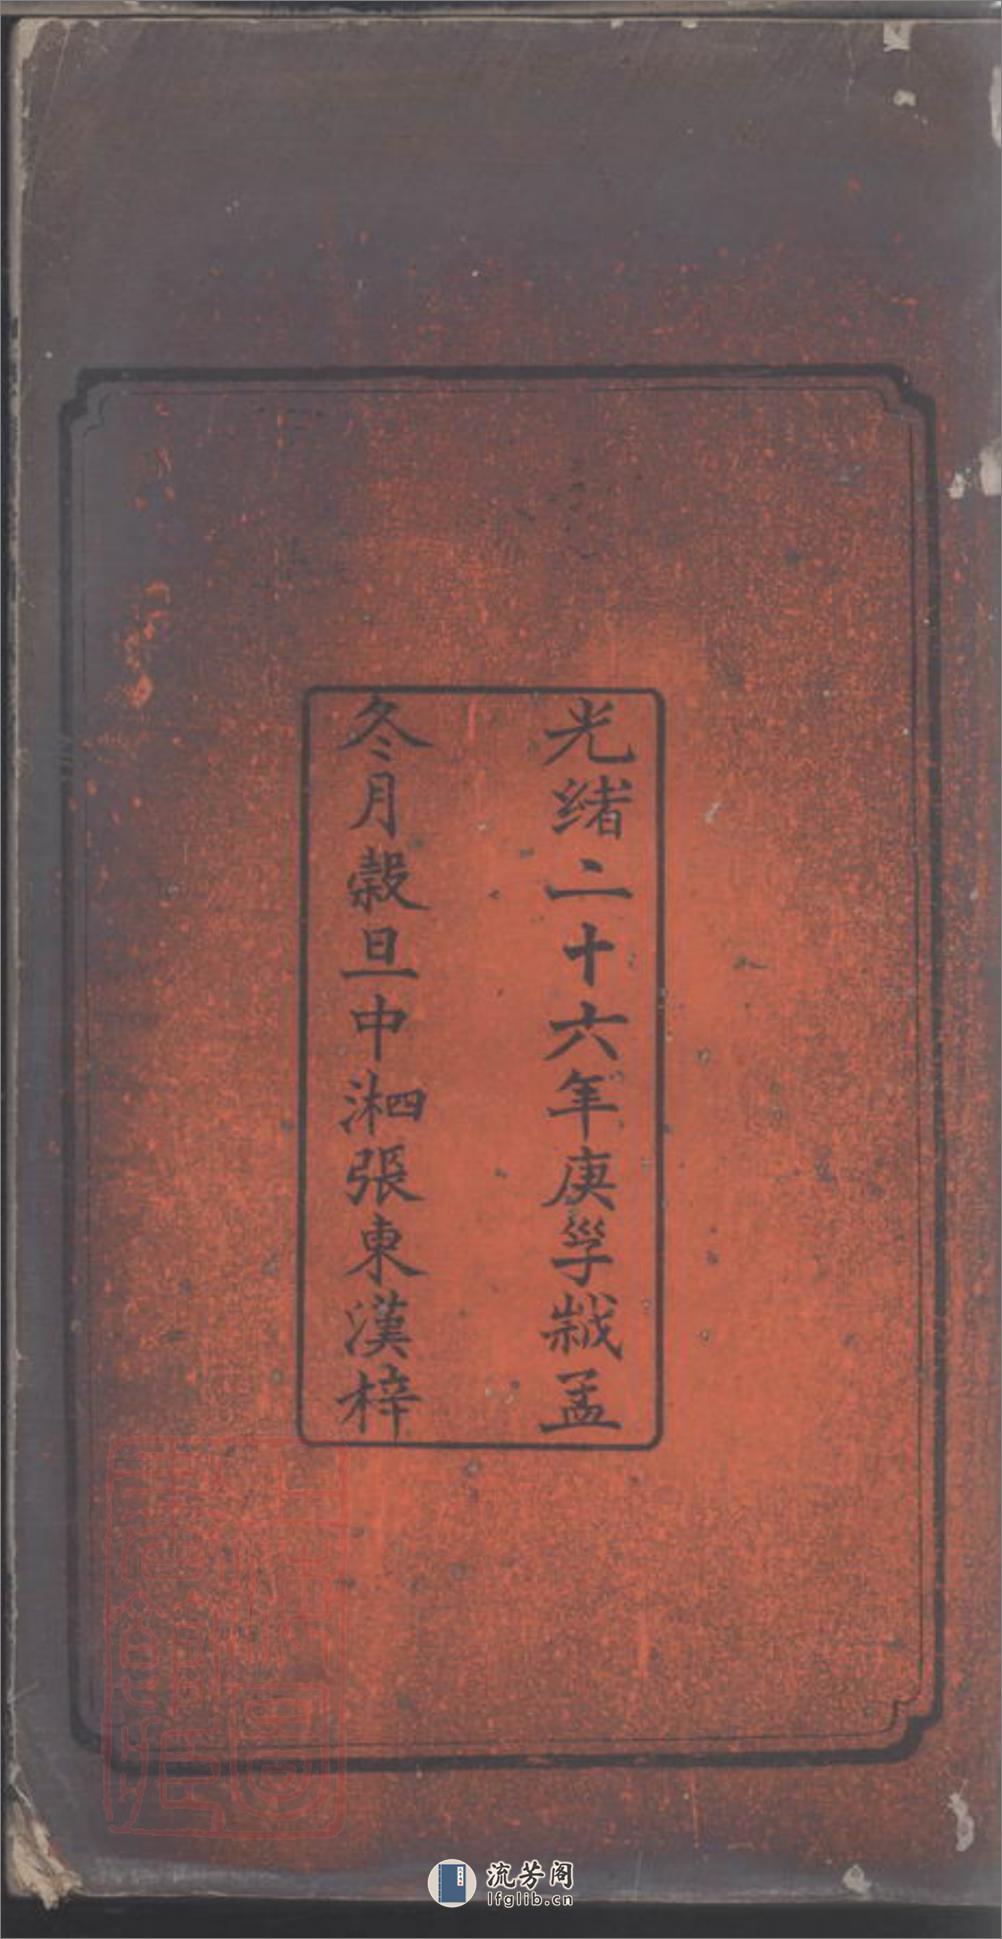 光緒二十六年庚㜽歲孟
冬月穀旦中湘張東漢梓
流芳阁
lfglib.cn